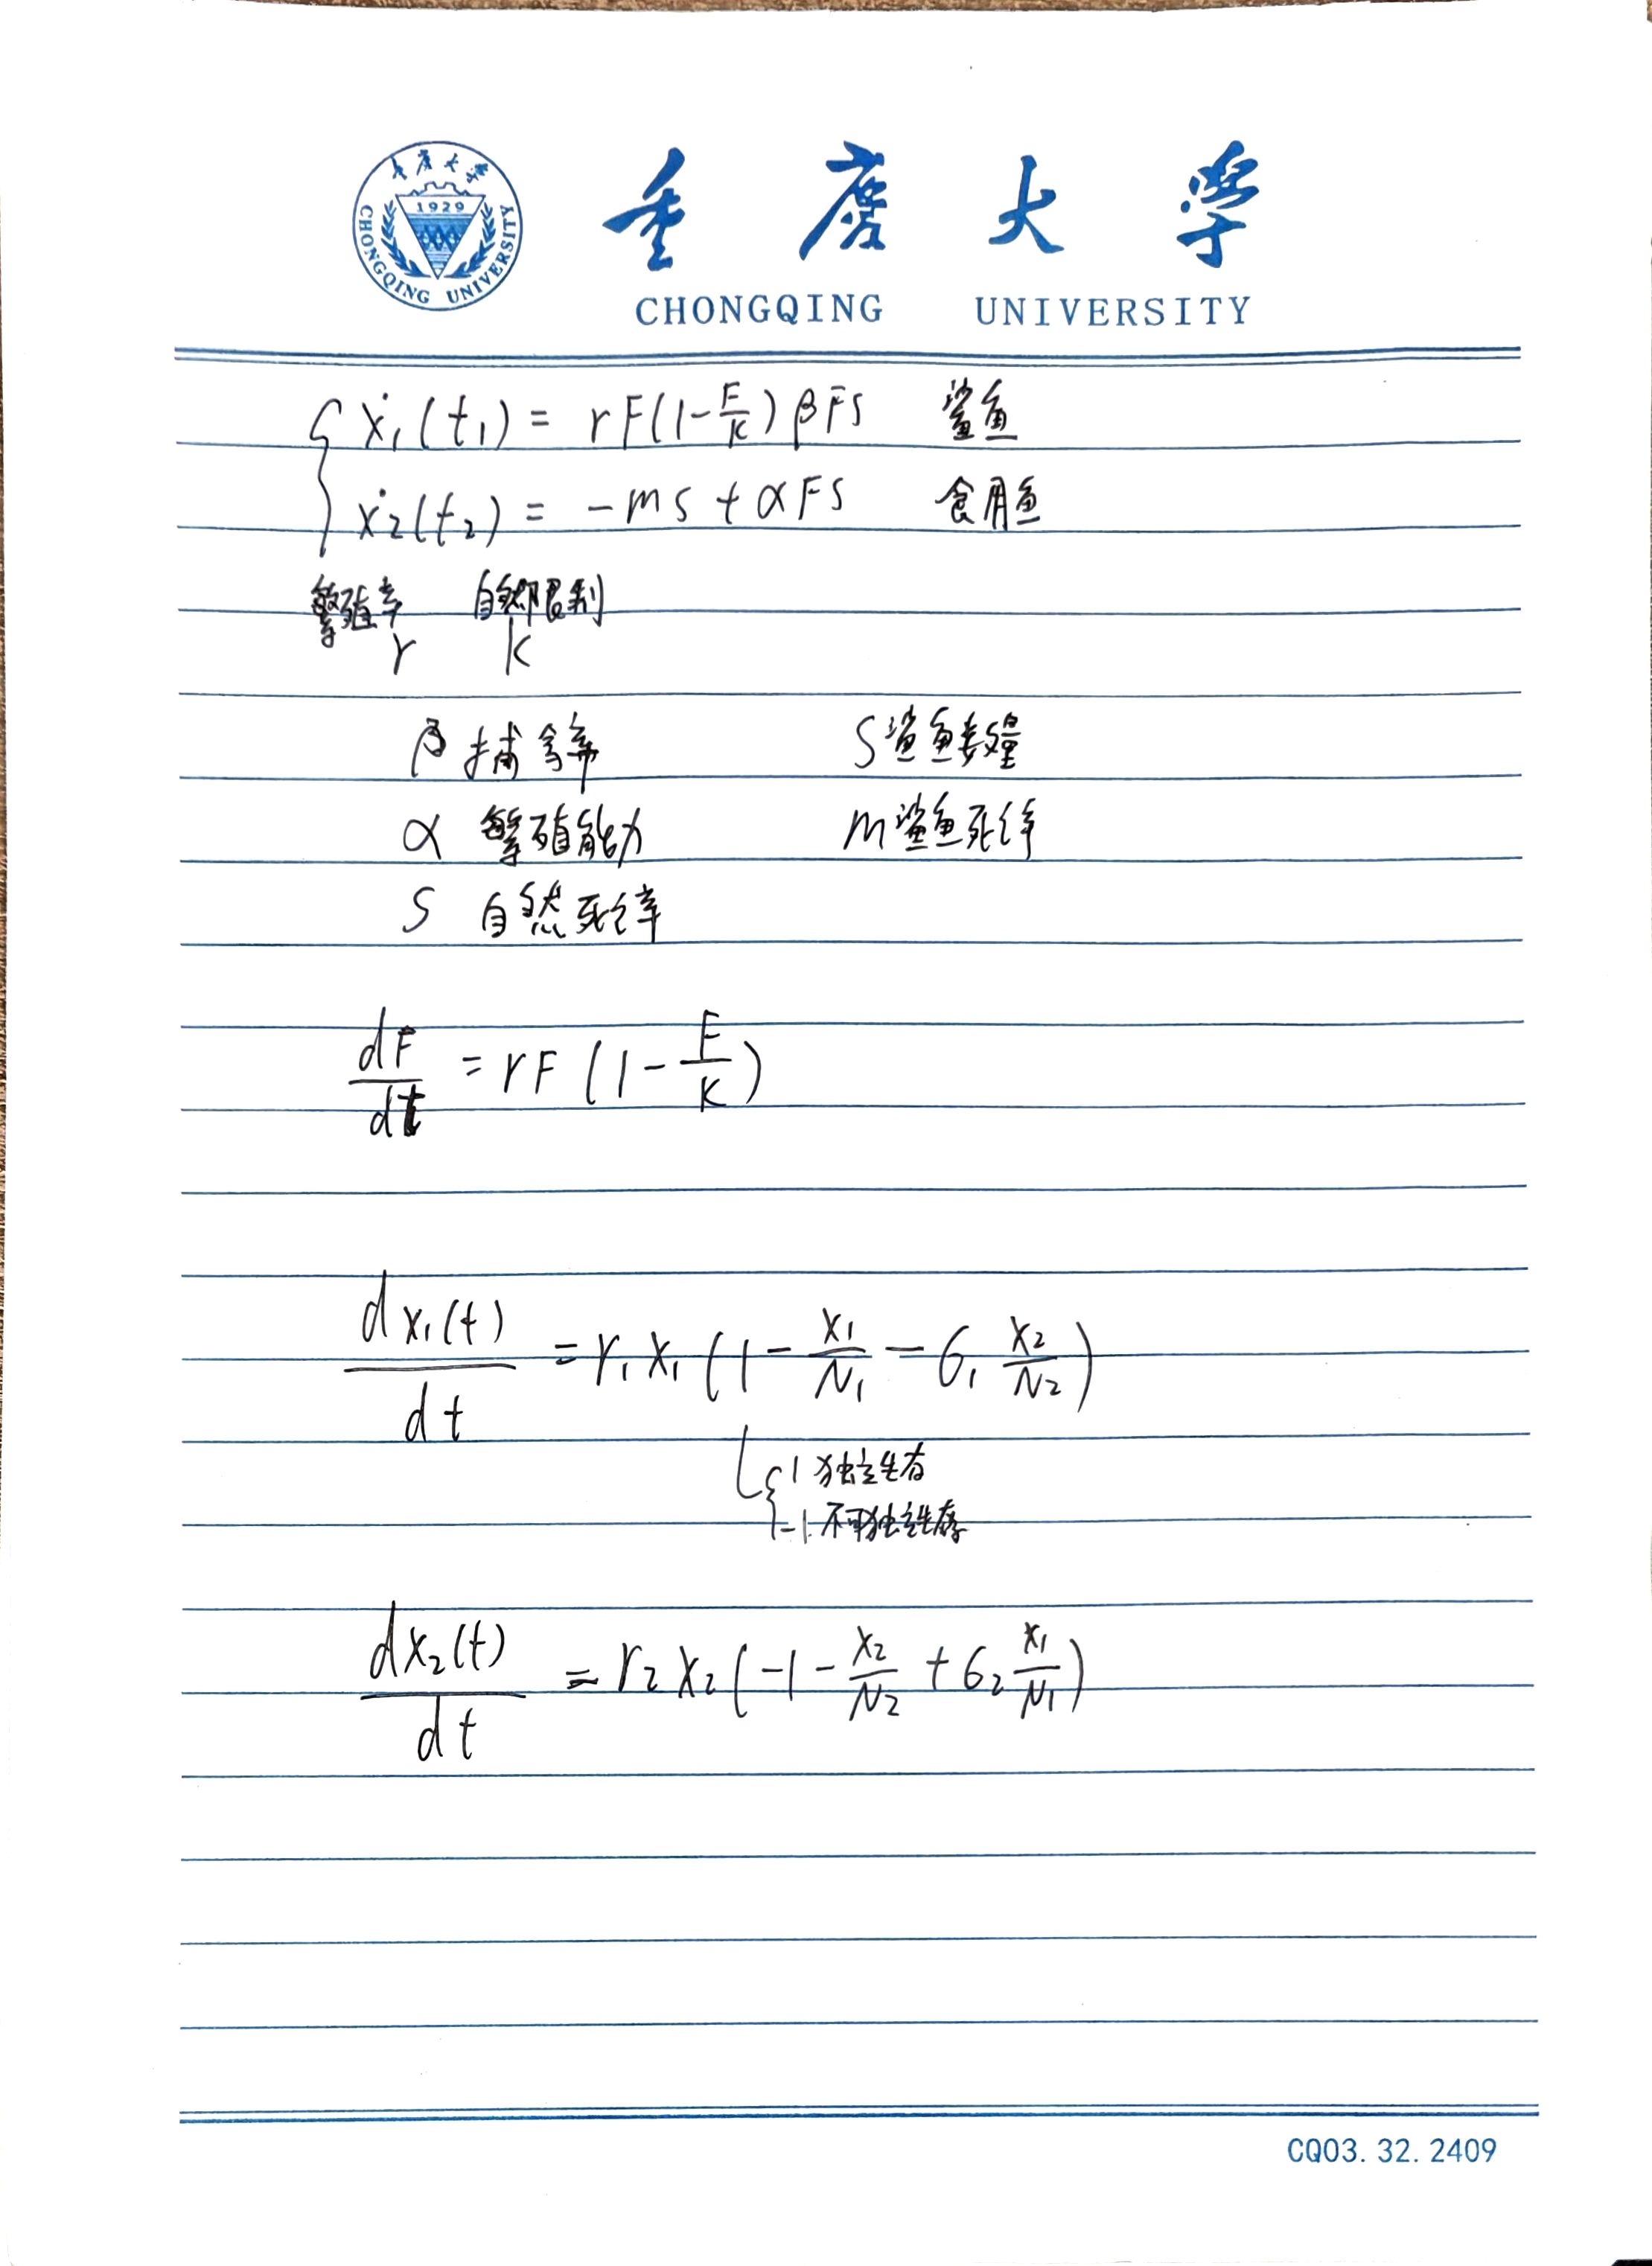 重庆大学
1929
CHONGQING UNIVERSITY
重庆大学
CHONGQING UNIVERSITY
ẋ₁(t₁) = rF(1-F/K) βFS 鲨鱼
ẋ₂(t₂) = -mS + αFS 食用鱼
繁殖率 自然限制
r k
β 捕食率 S 鲨鱼数量
α 繁殖能力 m 鲨鱼死亡率
S 自然死亡率
dF/dt = rF(1-F/K)
dx₁(t)/dt = r₁x₁(1 - x₁/N₁ - б₁ x₂/N₂)
1 独立生存
-1 不可独立生存
dx₂(t)/dt = r₂x₂(-1 - x₂/N₂ + б₂ x₁/N₁)
CQ03.32.2409